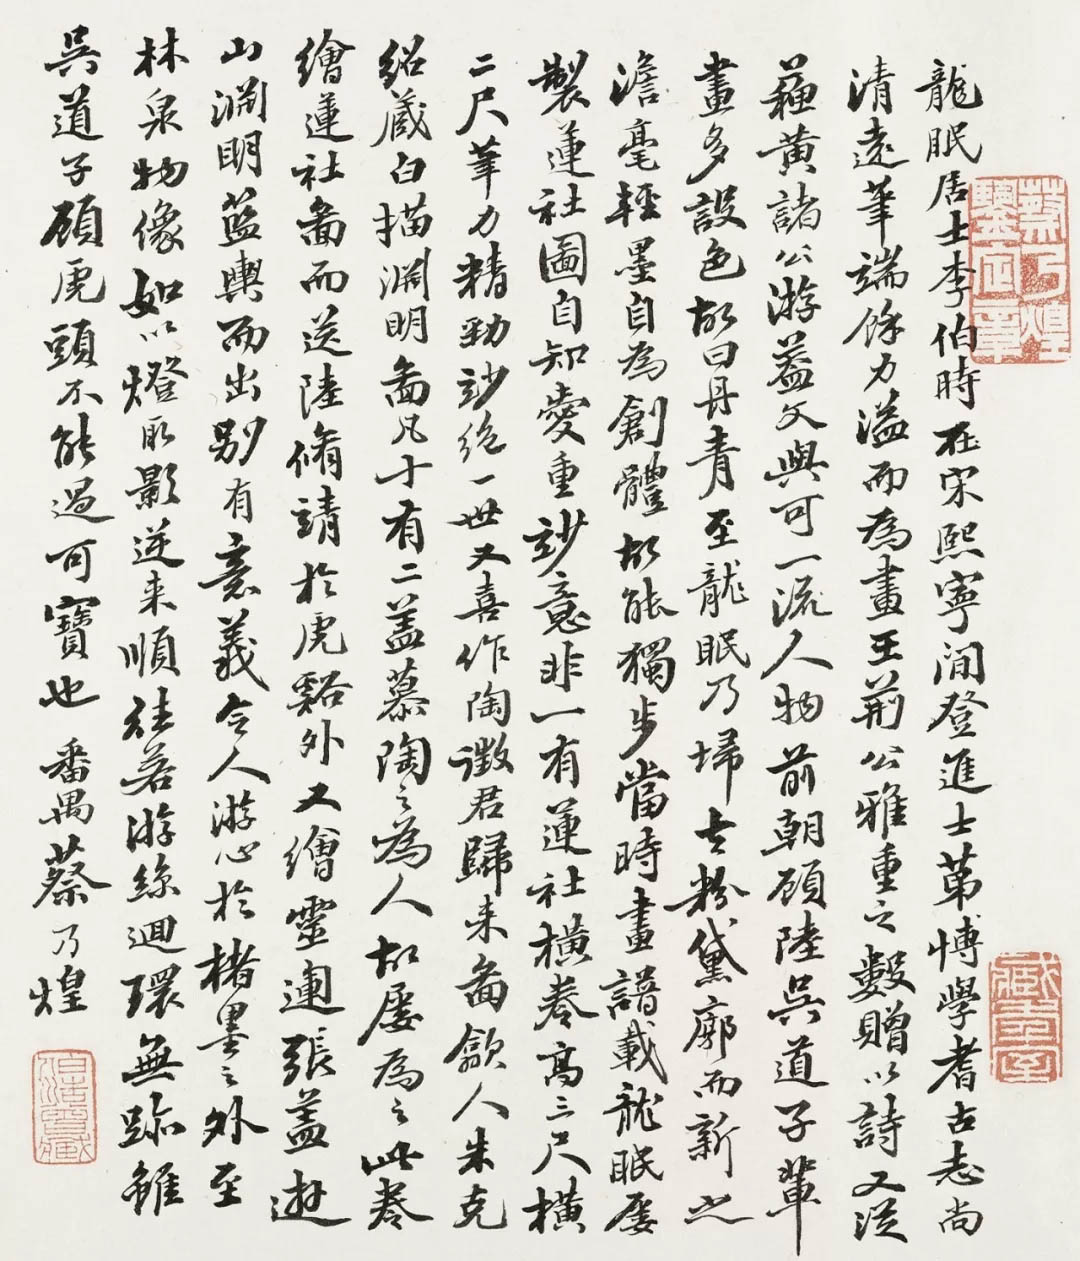 龍眠居士李伯時在宋熙寧間登進士第博學耆古志尚
清遠筆端餘力溢而為畫王荊公雅重之數贈以詩又從
蘇黃諸公游蓋文與可一流人物前朝顧陸吳道子輩
畫多設色故曰丹青至龍眠乃埽去粉黛廓而新之
澹毫輕墨自為創體故能獨步當時畫譜載龍眠屢
製蓮社圖自知愛重妙意非一有蓮社橫卷高三尺橫
二尺筆力精勁妙絕一世又喜作陶徵君歸來圖歙人朱克
紹蔵白描淵明圖凡十有二蓋慕陶之為人故屢為之此卷
繪蓮社圖而送陸脩靖於虎谿外又繪靈運張蓋遊
山淵明藍輿而出別有意義令人游心於楮墨之外至
林泉物像如以燈取影逆来順往若游絲迴環無跡雖
吳道子顧虎頭不能過可寶也 番禺蔡乃煌
蔡乃煌
鑒定章